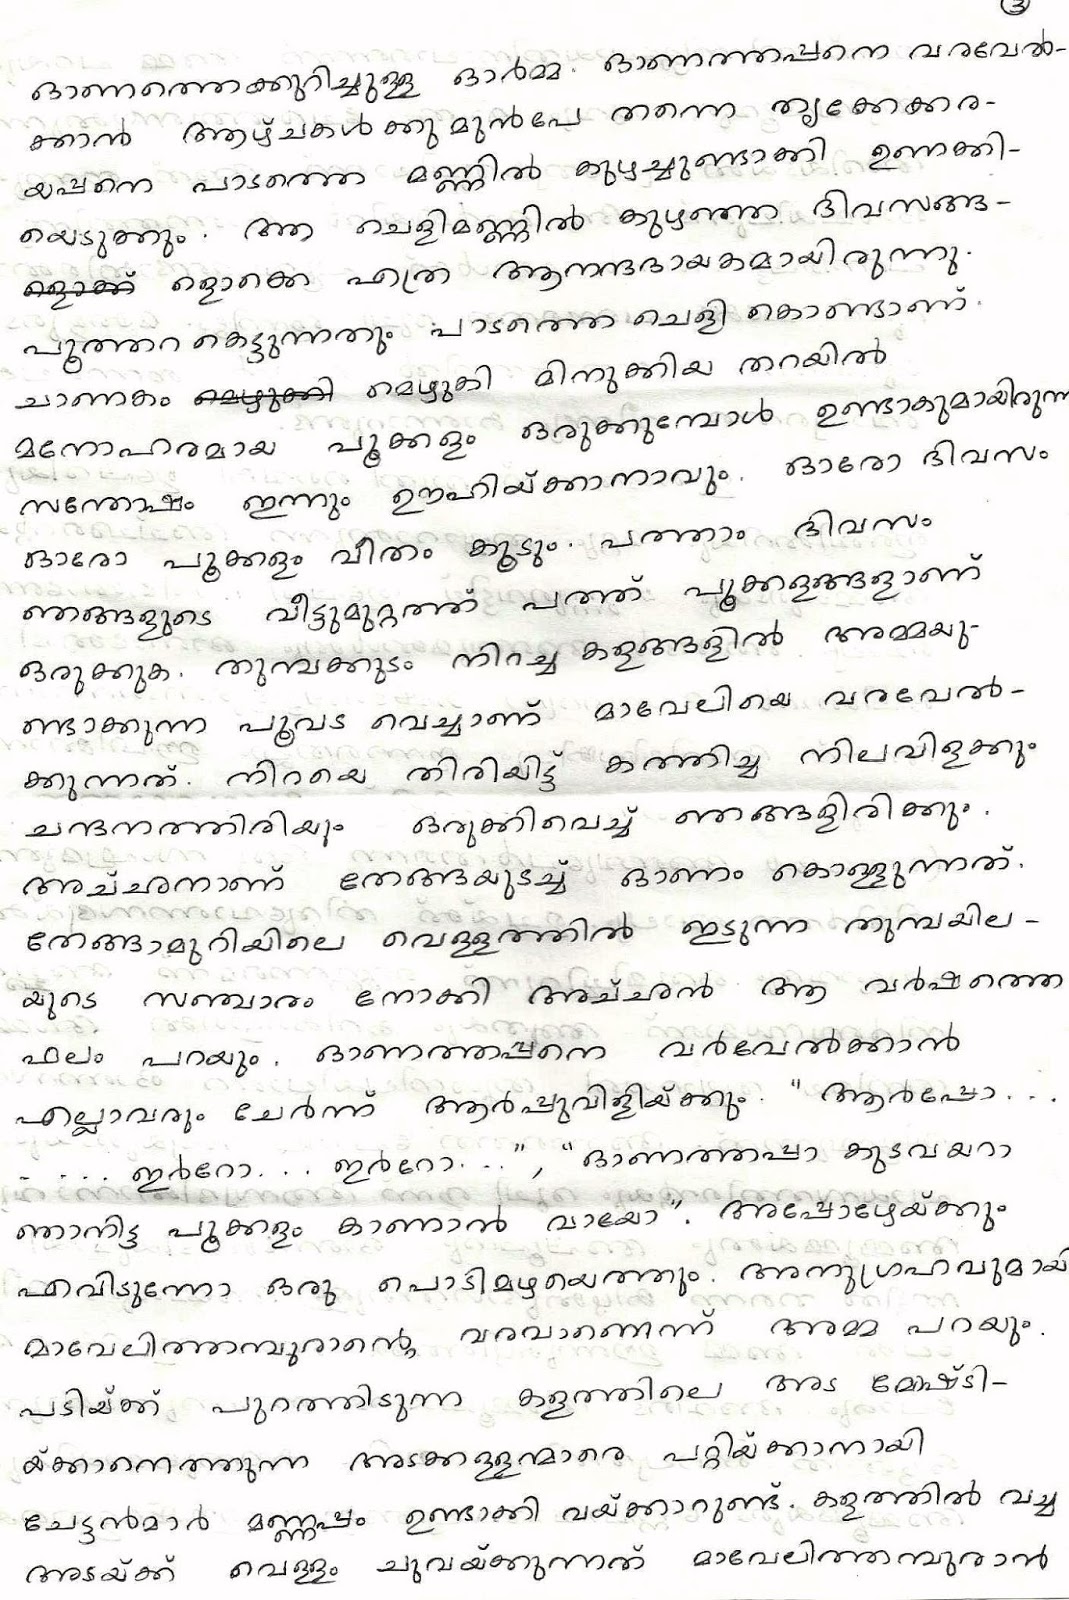 ③
ഓണത്തെക്കുറിച്ചുള്ള ഓർമ്മ. ഓണത്തപ്പനെ വരവേൽ-
ക്കാൻ ആഴ്ചകൾക്കുമുൻപേ തന്നെ തൃക്കേക്കര-
യപ്പനെ പാടത്തെ മണ്ണിൽ കുഴച്ചുണ്ടാക്കി ഉണക്കി-
യെടുക്കും. ആ ചെളിമണ്ണിൽ കുഴഞ്ഞ ദിവസങ്ങ-
ളൊക്ക് ളൊക്കെ എത്ര ആനന്ദദായകമായിരുന്നു.
പൂത്തറ കെട്ടുന്നതും പാടത്തെ ചെളി കൊണ്ടാണ്.
ചാണകം മെഴുക്കി മെഴുകി മിനുക്കിയ തറയിൽ
മനോഹരമായ പൂക്കളം ഒരുക്കുമ്പോൾ ഉണ്ടാകുമായിരുന്ന
സന്തോഷം ഇന്നും ഊഹിയ്ക്കാനാവും. ഓരോ ദിവസം
ഓരോ പൂക്കളം വീതം കൂടും. പത്താം ദിവസം
ഞങ്ങളുടെ വീട്ടുമുറ്റത്ത് പത്ത് പൂക്കളങ്ങളാണ്
ഒരുക്കുക. തുമ്പക്കുടം നിറച്ച കളങ്ങളിൽ അമ്മയു-
ണ്ടാക്കുന്ന പൂവട വെച്ചാണ് മാവേലിയെ വരവേൽ-
ക്കുന്നത്. നിറയെ തിരിയിട്ട് കത്തിച്ച നിലവിളക്കും
ചന്ദനത്തിരിയും ഒരുക്കിവെച്ച് ഞങ്ങളിരിക്കും.
അച്ഛനാണ് തേങ്ങയുടച്ച് ഓണം കൊള്ളുന്നത്.
തേങ്ങാമുറിയിലെ വെള്ളത്തിൽ ഇടുന്ന തുമ്പയില-
യുടെ സഞ്ചാരം നോക്കി അച്ഛൻ ആ വർഷത്തെ
ഫലം പറയും. ഓണത്തപ്പനെ വർവേൽക്കാൻ
എല്ലാവരും ചേർന്ന് ആർപ്പുവിളിയ്ക്കും. "ആർപ്പോ...
..... ഇർറോ... ഇർറോ...", "ഓണത്തപ്പാ കുടവയറാ
ഞാനിട്ട പൂക്കളം കാണാൻ വായോ". അപ്പോഴേയ്ക്കും
എവിടുന്നോ ഒരു പൊടിമഴയെത്തും. അനുഗ്രഹവുമായി
മാവേലിത്തമ്പുരാന്റെ, വരവാണെന്ന് അമ്മ പറയും.
പടിയ്ക്ക് പുറത്തിടുന്ന കളത്തിലെ അട മോഷ്ടി-
യ്ക്കാനെത്തുന്ന അടക്കള്ളന്മാരെ പറ്റിയ്ക്കാനായി
ചേട്ടൻമാർ മണ്ണപ്പം ഉണ്ടാക്കി വയ്ക്കാറുണ്ട്. കളത്തിൽ വച്ച
അടയ്ക്ക് വെള്ളം ചുവയ്ക്കുന്നത് മാവേലിത്തമ്പുരാൻ